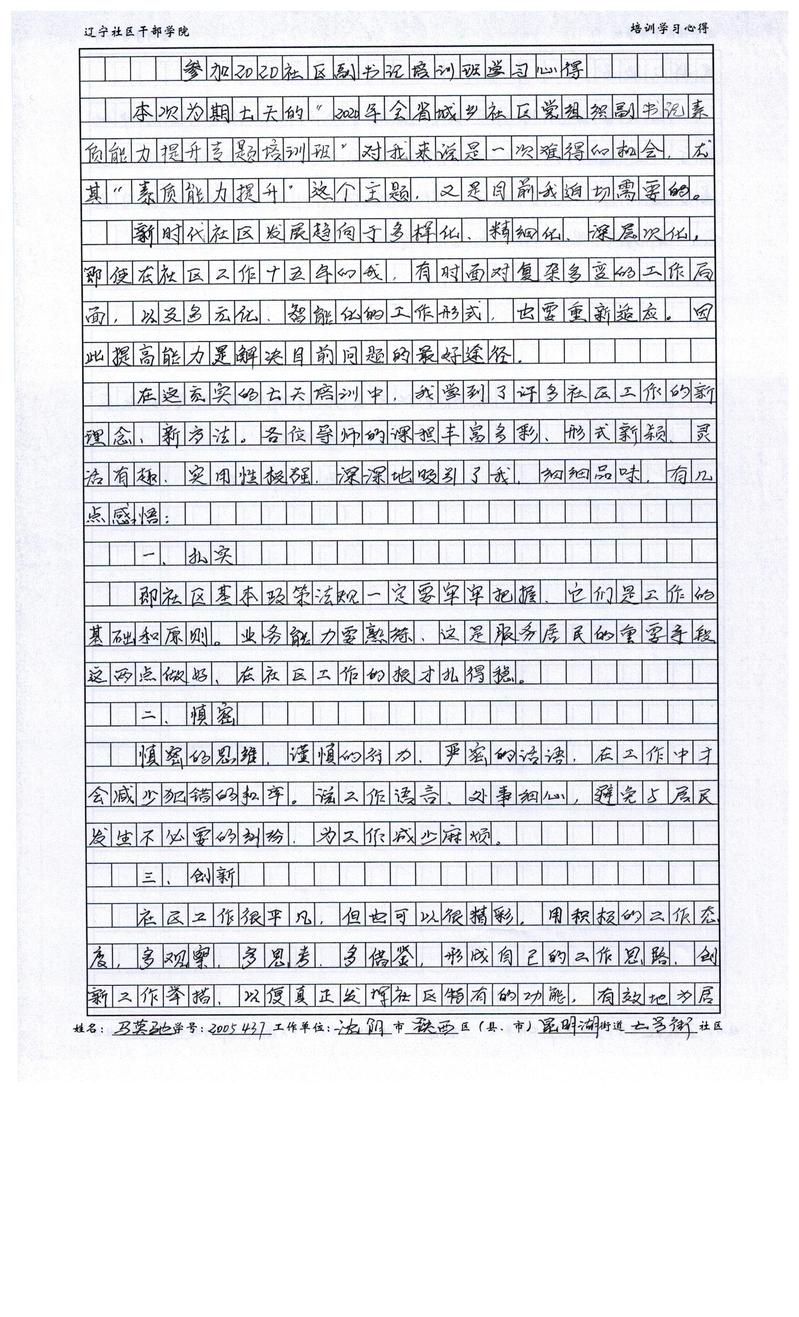 辽宁社区干部学院 培训学习心得
参加2020社区副书记培训班学习心得
本次为期七天的“2020年全省城乡社区党组织副书记素
质能力提升专题培训班”对我来说是一次难得的机会，尤
其“素质能力提升”这个主题，又是目前我迫切需要的。
新时代社区发展趋向于多样化、精细化、深层次化，
即使在社区工作十五年的我，有时面对复杂多变的工作局
面，以及多元化、智能化的工作形式，也要重新适应。因
此提高能力是解决目前问题的最好途径。
在这充实的七天培训中，我学到了许多社区工作的新
理念、新方法。各位导师的课程丰富多彩、形式新颖、灵
活有趣、实用性极强，深深地吸引了我，细细品味，有几
点感悟：
一、扎实
即社区基本政策法规一定要牢牢把握，它们是工作的
基础和原则。业务能力要熟练，这是服务居民的重要手段
这两点做好，在社区工作的根才扎得稳。
二、慎密
慎密的思维，谨慎的行为，严密的话语，在工作中才
会减少犯错的机率。说工作语言、处事细心，避免与居民
发生不必要的纠纷，为工作减少麻烦。
三、创新
社区工作很平凡，但也可以很精彩，用积极的工作态
度，多观察，多思考，多借鉴，形成自己的工作思路，创
新工作举措，以便真正发挥社区特有的功能，有效地为居
姓名：马英 学号：2005437 工作单位：沈阳市 铁西区（县、市）昆明湖街道 七号街社区